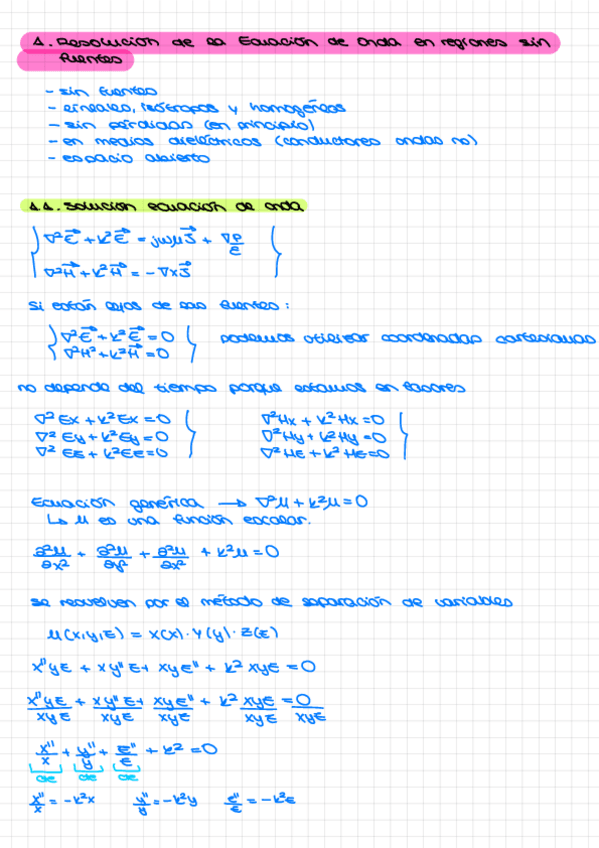 1. Resolución de la Ecuación de Onda en regiones sin
fuentes
- sin fuentes
- lineales, isótropos y homogéneos
- sin pérdidas (en principio)
- en medios dieléctricos (conductores ondas no)
- espacio abierto
1.1. Solución ecuación de onda
∇²E⃗ + k²E⃗ = jωμJ⃗ + ∇ρ/ε
∇²H⃗ + k²H⃗ = -∇xJ⃗
Si están lejos de las fuentes:
∇²E⃗ + k²E⃗ = 0 podemos utilizar coordenadas cartesianas
∇²H² + k²H⃗ = 0
no depende del tiempo porque estamos en fasores
∇²Ex + k²Ex = 0 ∇²Hx + k²Hx = 0
∇²Ey + k²Ey = 0 ∇²Hy + k²Hy = 0
∇²Ez + k²Ez = 0 ∇²Hz + k²Hz = 0
Ecuación genérica → ∇²μ + k²μ = 0
↳ μ es una función escalar.
∂²μ/∂x² + ∂²μ/∂y² + ∂²μ/∂x² + k²μ = 0
se resuelven por el método de separación de variables
μ(x,y,z) = X(x)·Y(y)·Z(z)
x''yz + xy''z + xyz'' + k² xyz = 0
x''yz/xyz + xy''z/xyz + xyz''/xyz + k² xyz/xyz = 0/xyz
x''/x + y''/y + z''/z + k² = 0
cte cte cte
x''/x = -k²x y''/y = -k²y z''/z = -k²z